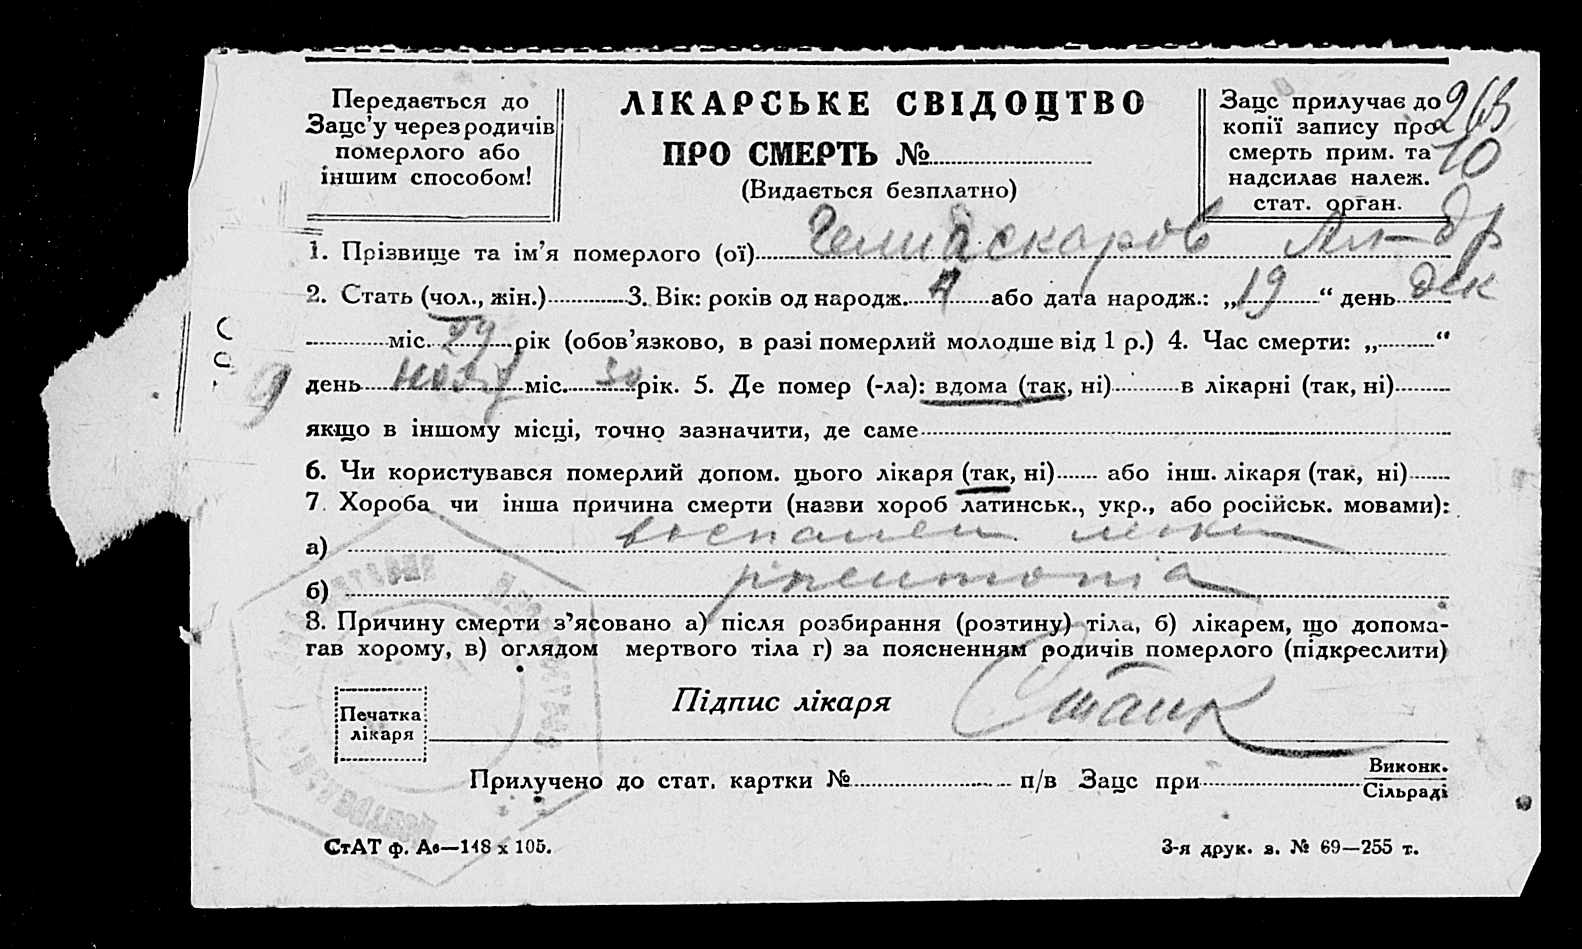 Передається до
Зацс'у через родичів
померлого або
іншим способом!
ЛІКАРСЬКЕ СВІДОЦТВО
ПРО СМЕРТЬ №
(Видається безплатно)
Зацс прилучає до
копії запису про
смерть прим. та
надсилає належ.
стат. орган.
10
1. Прізвище та ім'я померлого (ої)
2. Стать (чол., жін.) 3. Вік: років од народж. або дата народж.: „ 19 “ день дек
міс. 29 рік (обов'язково, в разі померлий молодше від 1 р.) 4. Час смерти: „ “
9 день нояб міс. 30 рік. 5. Де помер (-ла): вдома (так, ні) в лікарні (так, ні)
якщо в іншому місці, точно зазначити, де саме
6. Чи користувався померлий допом. цього лікаря (так, ні) або інш. лікаря (так, ні)
7. Хороба чи інша причина смерти (назви хороб латинськ., укр., або російськ. мовами):
а) воспален. легких
б) pneumonia
8. Причину смерти з'ясовано а) після розбирання (розтину) тіла, б) лікарем, що допома-
гав хорому, в) оглядом мертвого тіла г) за поясненням родичів померлого (підкреслити)
Печатка
лікаря
Підпис лікаря
Прилучено до стат. картки № п/в Зацс при Виконк.
Сільраді
СтАТ ф. Ав—148 х 105.
3-я друк. з. № 69—255 т.